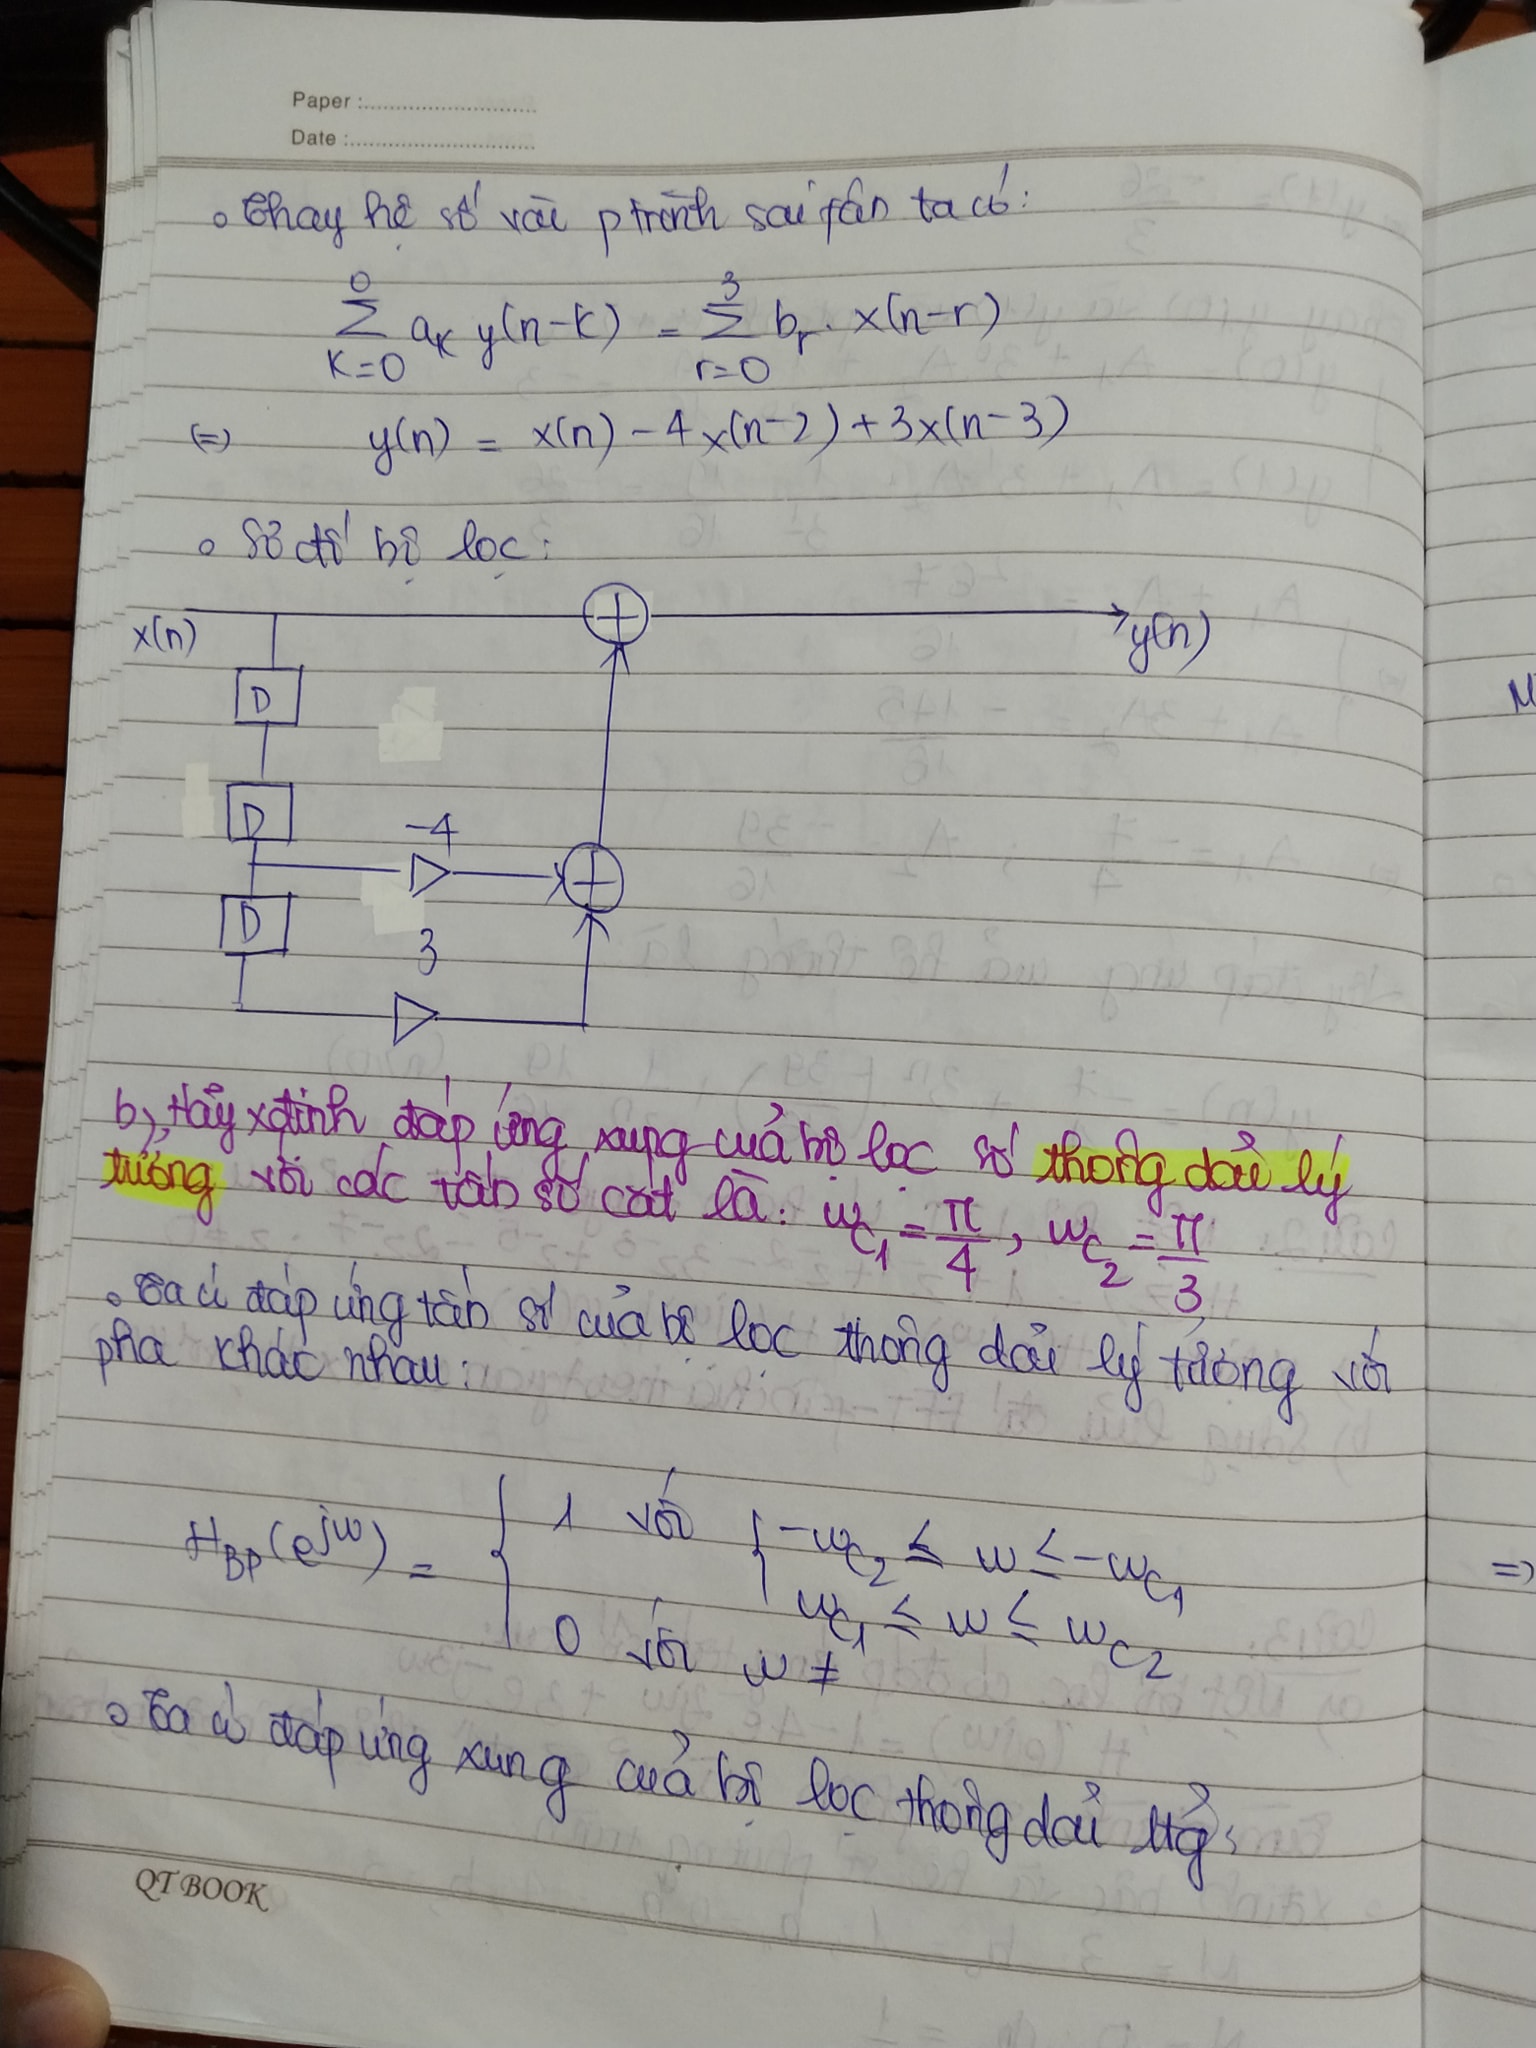 Paper :
Date :
• Thay hệ số vào ptrình sai phân ta có:
0 3
∑ aₖ y(n-k) = ∑ bᵣ . x(n-r)
K=0 r=0
(=) y(n) = x(n) - 4x(n-2) + 3x(n-3)
• Sơ đồ bộ lọc:
x(n) + y(n)
D
D -4
+
D 3
b), Hãy xđịnh đáp ứng xung của bộ lọc số thông dải lý
tưởng với các tần số cắt là: ω_C₁ = π/4, ω_C₂ = π/3
• Ta có đáp ứng tần số của bộ lọc thông dải lý tưởng với
pha khác nhau:
H_BP(e^jω) = { 1 với { -ω_C₂ ≤ ω ≤ -ω_C₁
ω_C₁ ≤ ω ≤ ω_C₂
0 với ω ≠
• Ta có đáp ứng xung của bộ lọc thông dải ltg:
QT BOOK
=)